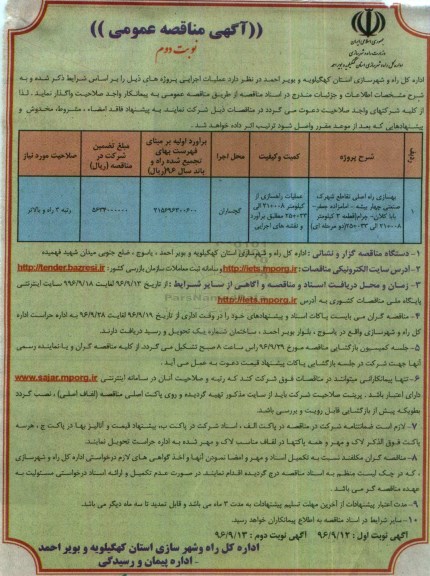 ((آگهی مناقصه عمومی))
نوبت دوم
جمهوری اسلامی ایران
وزارت راه و شهرسازی
اداره کل راه و شهرسازی استان کهگیلویه و بویراحمد
اداره کل راه و شهرسازی استان کهگیلویه و بویر احمد در نظر دارد عملیات اجرایی پروژه های ذیل را بر اساس شرایط ذکر شده و به
شرح مشخصات اطلاعات و جزئیات مندرج در اسناد مناقصه از طریق مناقصه عمومی به پیمانکار واجد صلاحیت واگذار نماید. لذا
از کلیه شرکتهای واجد صلاحیت دعوت می گردد در مناقصات ذیل شرکت نمایند. به پیشنهاد فاقد امضاء، مشروط، مخدوش و
پیشنهادهایی که بعد از موعد مقرر واصل شود ترتیب اثر داده نخواهد شد.
ردیف
شرح پروژه
کمیت و کیفیت
محل اجرا
برآورد اولیه بر مبنای
فهرست بهای
تجمیع شده راه و
باند سال ۹۶(ریال)
مبلغ تضمین
شرکت در
مناقصه (ریال)
صلاحیت مورد نیاز
۱
بهسازی راه اصلی تقاطع شهرک
صنعتی چهار بیشه - امامزاده جعفر-
بابا کلان-
عملیات راهسازی از
مطابق برآورد
و نقشه های اجرایی
گچساران
رتبه ۳ راه و بالاتر
۱- دستگاه مناقصه گزار و نشانی: اداره کل راه و شهرسازی استان کهگیلویه و بویر احمد، یاسوج، ضلع جنوبی میدان شهید فهمیده
۲- آدرس سایت الکترونیکی مناقصات: http://iets.mporg.ir و سامانه ثبت معاملات سازمان بازرسی کشور: http://tender.bazresi.ir
۳- زمان و محل دریافت اسناد و مناقصه و آگاهی از سایر شرایط: از تاریخ ۹۶/۹/۱۲ لغایت ۹۹۶/۹/۱۸ سایت اینترنتی
پایگاه ملی مناقصات کشوری به آدرس http://iets.mporg.ir
۴- مناقصه گران می بایست پاکات اسناد و پیشنهادهای خود را در وقت اداری از تاریخ ۹۶/۹/۱۹ لغایت ۹۶/۹/۲۸ به اداره حراست اداره
کل راه و شهرسازی واقع در یاسوج، بلوار بویر احمد، ساختمان شماره یک تحویل و رسید دریافت دارند.
۵- جلسه کمیسیون بازگشایی مناقصه مورخ ۹۶/۹/۲۹ راس ساعت ۸ صبح تشکیل می گردد. از کلیه مناقصه گران و یا نماینده رسمی
آنها جهت شرکت در جلسه بازگشایی پاکات پیشنهاد قیمت دعوت به عمل می آید.
۶- تنها پیمانکارانی میتوانند در مناقصات فوق شرکت کنند که رتبه و صلاحیت آنان در سامانه اینترنتی www.sajar.mporg.ir
دارای اعتبار باشد. پرینت صلاحیت شرکت باید از سایت مذکور تهیه گردیده و روی پاکت اصلی مناقصه (لفاف اصلی)، نصب گردد
بطوریکه پیش از بازگشایی قابل رویت و بررسی باشد.
۷- لازم است ضمانتنامه شرکت در مناقصه در پاکت الف، اسناد شرکت در پاکت ب، پیشنهاد قیمت و آنالیز بها در پاکت ج، هر سه
پاکت فوق الذکر لاک و مهر و همه پاکتها در لفاف مناسب لاک و مهر شده به اداره حراست تحویل نمایند.
۸- مناقصه گران مکلفند نسبت به تکمیل اسناد و مهر و امضا نمودن آنها و اخذ گواهی های لازم درخواستی اداره کل راه و شهرسازی
، که در چک لیست منظم به اسناد مناقصه درج گردیده اقدام نمایند. در صورت عدم تکمیل و ارائه اسناد درخواستی مسئولیت به
عهده مناقصه گر می باشد.
۹- مدت اعتبار پیشنهادات از آخرین مهلت تسلیم پیشنهادات به مدت ۳ ماه می باشد و قابل تمدید تا سه ماه دیگر می باشد.
۱۰- سایر شرایط در اسناد مناقصه به اطلاع پیمانکاران خواهد رسید.
آگهی نوبت اول: ۹۶/۹/۱۲ آگهی نوبت دوم: ۹۶/۹/۱۳
اداره کل راه وشهر سازی استان کهگیلویه و بویر احمد
- اداره پیمان و رسیدگی